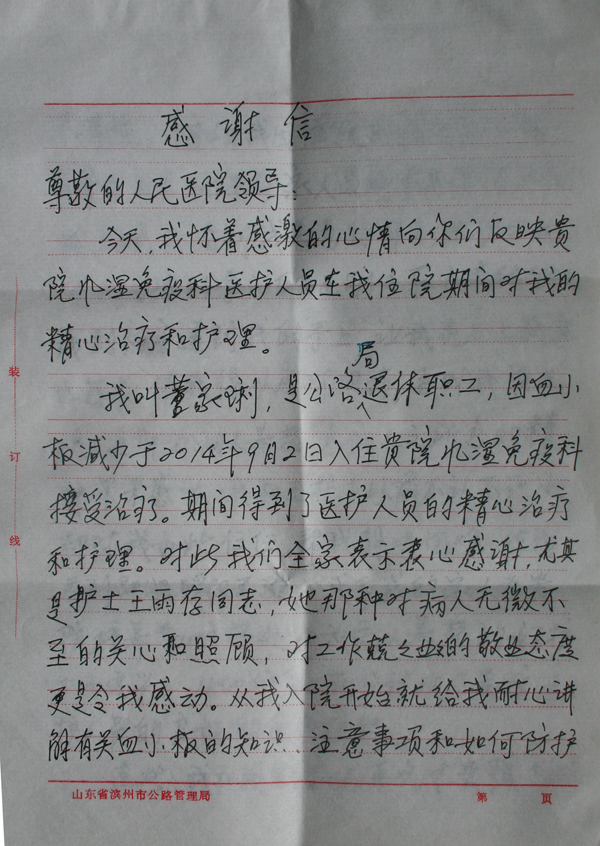 感谢信
尊敬的人民医院领导:
今天,我怀着感激的心情向你们反映贵
院风湿免疫科医护人员在我住院期间对我的
精心治疗和护理。
局
我叫董家琍,是公路退休职工,因血小
板减少于2014年9月2日入住贵院风湿免疫科
接受治疗。期间得到了医护人员的精心治疗
和护理。对此我们全家表示衷心感谢,尤其
是护士王雨存同志,她那种对病人无微不
至的关心和照顾,对工作兢兢业业的敬业态度
更是令我感动。从我入院开始就给我耐心讲
解有关血小板的知识、注意事项和如何防护
装
订
线
山东省滨州市公路管理局
第 页